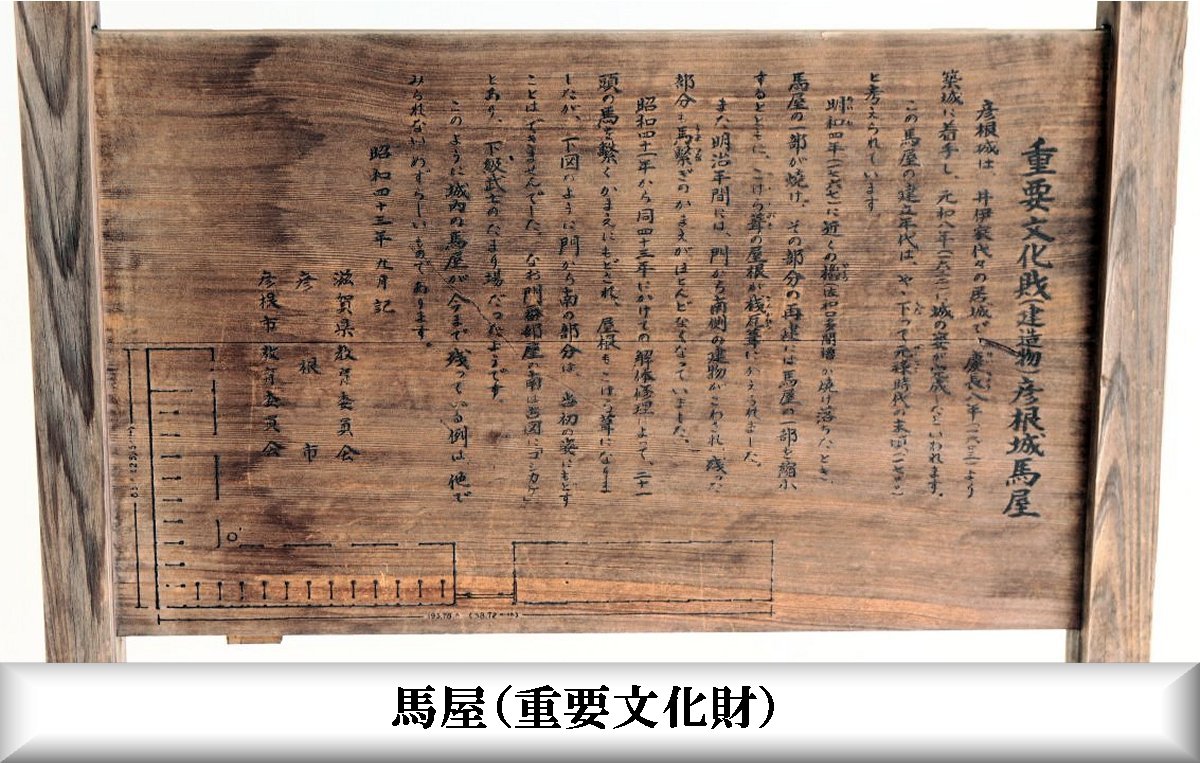 重要文化財(建造物)彦根城馬屋
彦根城は、井伊家代々の居城で、慶長八年(一六〇三)より
築城に着手し、元和八年(一六二二)城の姿が完成したといわれます。
この馬屋の建立年代は、やゝ下って元禄時代の末頃(一七〇〇)
と考えられています
明和四年(一七六七)に近くの櫓(佐和口多聞櫓)が焼け落ちたとき、
馬屋の一部が焼け、その部分の再建には馬屋の一部を縮小
するとともに、こけら葺の屋根が桟瓦葺にかえられました。
また明治年間には、門から南側の建物がこわされ、残った
部分も馬繋ぎのかまえがほとんどなくなっていました。
昭和四十一年から同四十三年にかけての解体修理によって、二十一
頭の馬を繋ぐかまえにもどされ、屋根もこけら葺になりま
したが、下図のように門から南の部分は、当初の姿にもどす
ことはできませんでした。なお門
とあり、下級武士のたまり場だったようです
このように城内の馬屋が今まで残っている例は他で
みられないめずらしいものであります。
昭和四十三年九月記
滋賀県教育委員会
彦根市
彦根市教育委員会
馬屋(重要文化財)